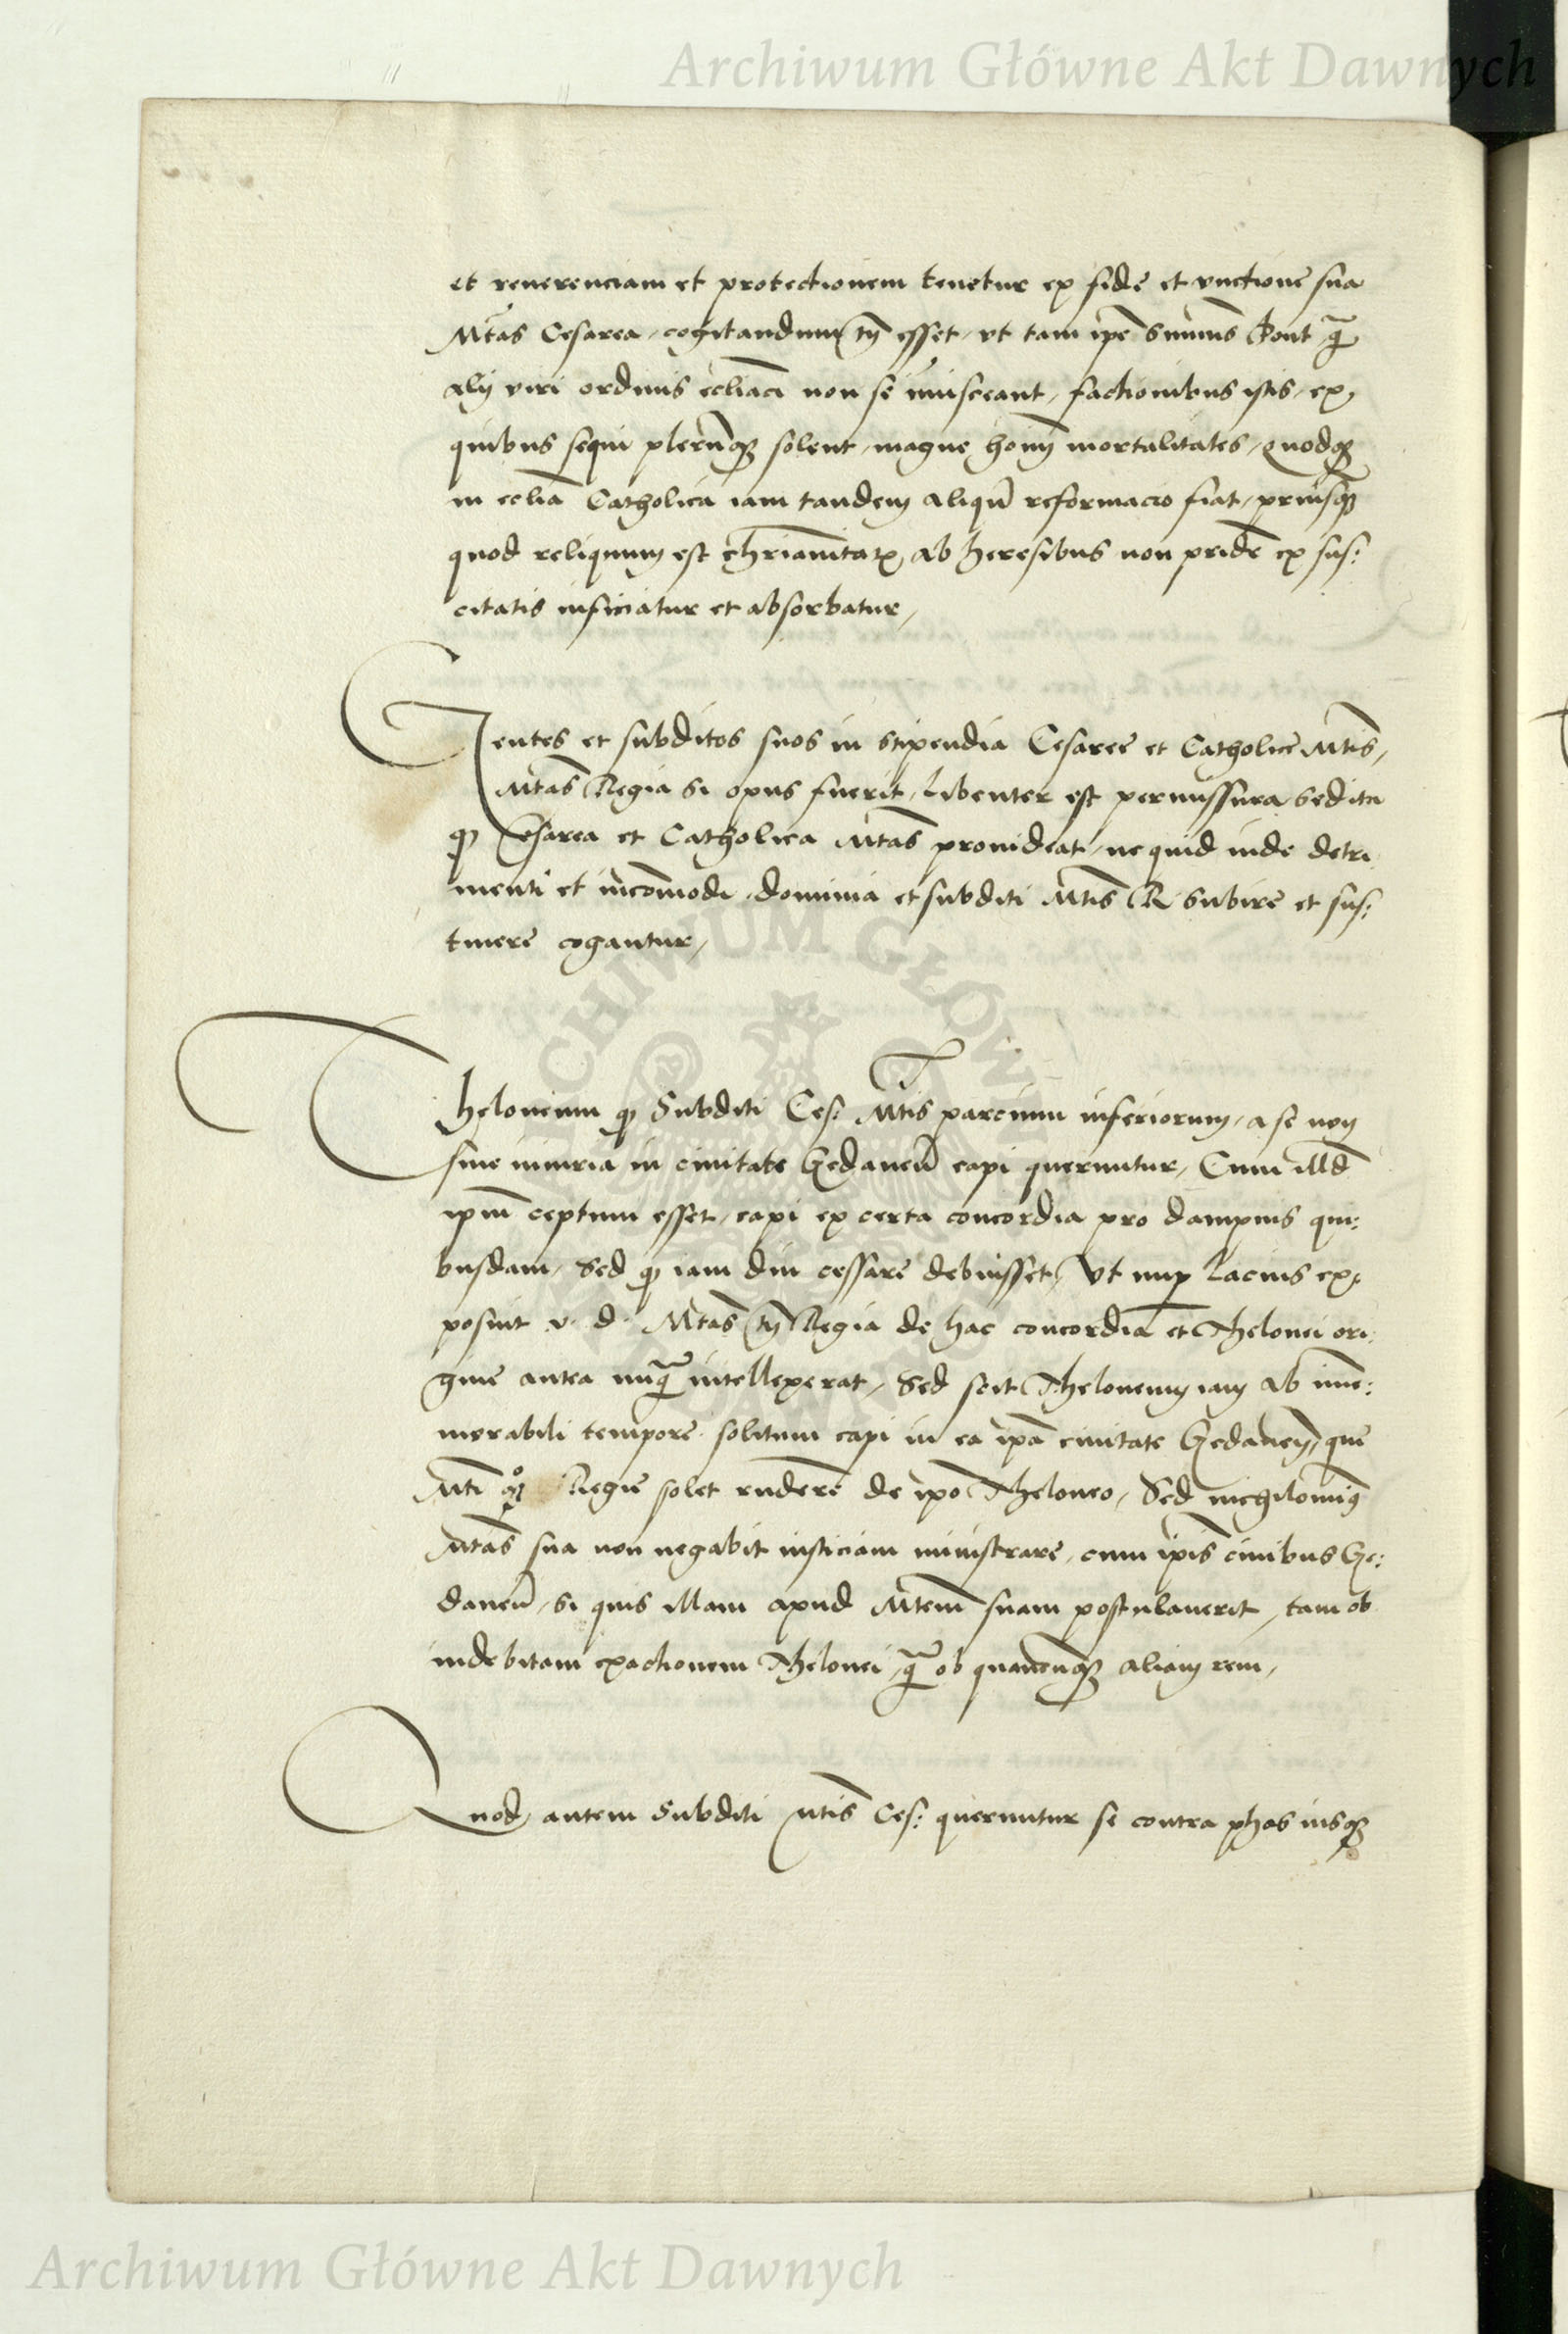 Archiwum Główne Akt Dawnych
et reuerenciam et protectionem tenetur ex fide et vnctione sua
Mtas Cesarea, cogitandum tn esset, vt tam ipe Summs Pont q̃
alij viri ordinis ecliaci non se imisceant, factionibus istis, ex
quibus sequi plerũq solent, magne homĩ mortalitates, quodq
in eclia Catholica iam tandem aliqñ reformacio fiat, priusq
quod reliquum est christianitatis, ab heresibus non pridẽ ex sus:
citatis inficiatur et absorbatur,
Gentes et subditos suos in stipendia Cesaree et Catholice Mtis,
Mtas Regia si opus fuerit, libenter est permissura sed ita
q Cesarea et Catholica Mtas prouideat, ne quid inde detri
menti et incõmodi, dominia et subditi Mtis R. subire et sus:
tinere cogantur,
Theloneum q Subditi Ces: Mtis parcium inferiorum, a se non
sine iniuria in ciuitate Gedaneñ capi queruntur, Cum illd
ipm ceptum esset, capi ex certa concordia pro dampnis qui:
busdam, Sed q iam diu cessare debuisset, vt nup lacius ex,
posuit v. d. Mtas tn Regia de hac concordia et Thelonei ori:
gine antea nũq̃ intellexerat, Sed scit Theloneum iam ab ime:
morabili tempore solitum capi in ea ipa ciuitate Gedaneñ, que
Mti Regie solet reddere de ipo Theloneo, Sed nichilominq
Mtas sua non negabit iusticiam ministrare, cum ipis ciuibus Ge:
daneñ, si quis illam apud Mtem suam postulauerit, tam ob
indebitam exactionem Thelonei, q̃ ob quamcũq aliam rem,
Quod autem Subditi Mtis Ces: queruntur se contra phas iusq
Archiwum Główne Akt Dawnych